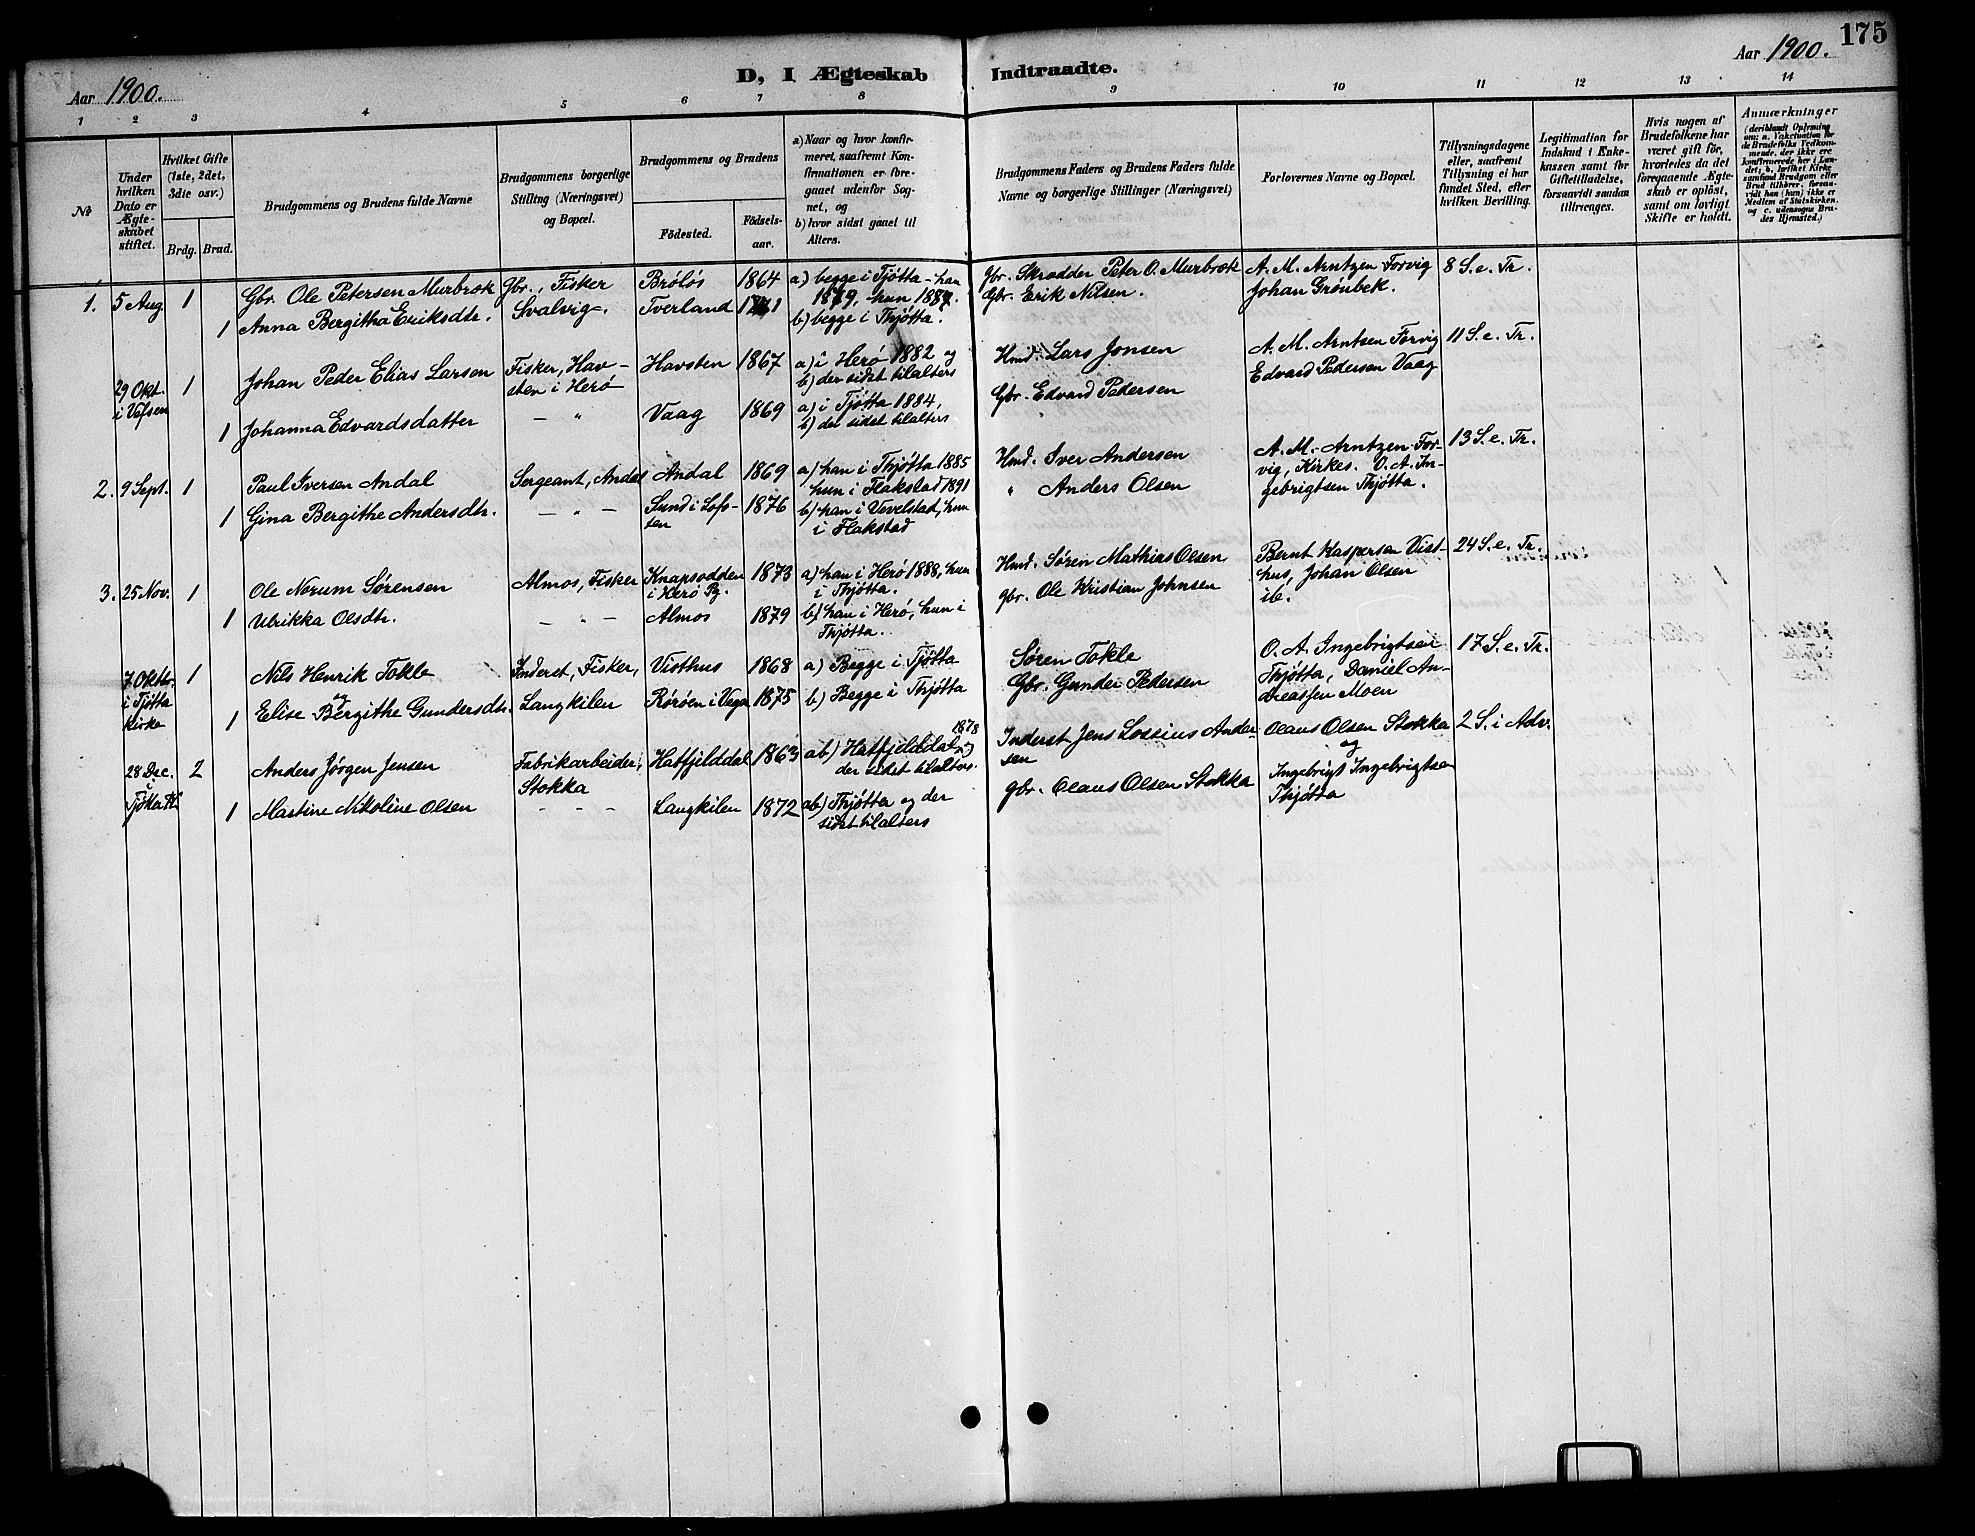 175
Aar 1900.
D, I Ægteskab Indtraadte.
Aar 1900.
1 2 3 4 5 6 7 8 9 10 11 12 13 14
№
Under hvilken Dato er Ægteskabet stiftet.
Hvilket Gifte (1ste, 2det, 3die osv.)
Brdg. Brud.
Brudgommens og Brudens fulde Navne
Brudgommens borgerlige Stilling (Næringsvei) og Bopæl.
Brudgommens og Brudens
Födested. Födselsaar.
a) Naar og hvor konfirmeret, saafremt Konfirmationen er foregaaet udenfor Sognet, og
b) hvor sidst gaaet til Alters.
Brudgommens Faders og Brudens Faders fulde Navne og borgerlige Stillinger (Næringsvei)
Forlovernes Navne og Bopæl.
Tillysningsdagene eller, saafremt Tillysning ei har fundet Sted, efter hvilken Bevilling.
Legitimation for Indskud i Enkekassen samt for Giftetilladelse, forsaavidt saadan tiltrænges.
Hvis nogen af Brudefolkene har været gift för, hvorledes da det foregaaende Ægteskab er oplöst, samt om lovligt Skifte er holdt.
Anmærkninger
(deriblandt Oplysning om: a. Vakcination for de Brudefolks Vedkommende, der ikke ere konfirmerede her i Landet; b. hvilket Kirkesamfund Brudgom eller Brud tilhører, forsaavidt han (hun) ikke er Medlem af Statskirken, og c. udensogns Brudes Hjemsted.)
1. 5 Aug. 1 Gbr. Ole Petersen Murbrok Gbr., Fisker Bröløs 1864 a) begge i Tjötta - han Gbr. Skrædder Peter O. Murbrok A. M. Arntzen Forvig 8 S. e. Tr.
1879, hun 188
1 Anna Bergitha Eriksdtr. Svalvig. Tverland b) begge i Thjøtta. Gbr. Erik Nilsen. Johan Grönbek.
29 Okt. i Vefsen 1 Johan Peder Elias Larsen Fisker, Havsten i Herø Havsten 1867 a) i Herø 1882 og Hmd. Lars Jonsen A. M. Arntzen Forvig 11 S. e. Tr.
b) der sidst tilalters Edvard Pedersen Vaag
1 Johanna Edvardsdatter — " Vaag 1869 a) i Tjötta 1884, Gbr. Edvard Pedersen
b) der sidst tilalters
2. 9 Sept. 1 Paul Iversen Andal Sergeant, Andal Andal 1869 a) han i Thjøtta 1885 Hmd. Iver Andersen A. M. Arntzen For- 13 S. e. Tr.
hun i Flakstad 1891 vig, Kirkes. O. A. In-
1 Gina Bergithe Andersdtr. — " — Sund i Lofoten 1876 b) han i Vevelstad, hun " Anders Olsen gebrigtsen Thjøtta.
i Flakstad
3. 25 Nov. 1 Ole Norum Sørensen Almos, Fisker Knapsodden i Herø Pg. 1873 a) han i Herø 1888, hun Hmd. Søren Mathias Olsen Bernt Kaspersen Vist- 24 S. e. Tr.
i Thjøtta. hus, Johan Olsen
1 Ulrikka Olsdtr. — " — Almos 1879 b) han i Herø, hun i Gbr. Ole Kristian Johnsen ib.
Thjøtta.
7 Oktbr. i Tjötta Kirke 1 Nils Henrik Tokle Inderst, Fisker, Visthus 1868 a) Begge i Tjötta Søren Tokle O. A. Ingebrigtsen 17 S. e. Tr.
og Thjøtta, Daniel An-
1 Elise Bergithe Gundersdtr. Langkilen Rörøen i Vega 1875 b) Begge i Thjøtta Gbr. Gunder Pedersen dreassen Moen
28 Dec. i Tjötta K. 2 Anders Jørgen Jensen Fabrikarbeider, Stokka Hatfjelddal 1863 ab) Hatfjelddal 1878 og Inderst Jens Lossius Andersen Olaus Olsen Stokka 2 S. i Adv.
der sidst tilalters. og
1 Martine Nikoline Olsen — — — Langkilen 1872 ab) Thjøtta og der Gbr. Olaus Olsen Stokka Ingebrigt Ingebrigtsen
sidst tilalters Thjøtta